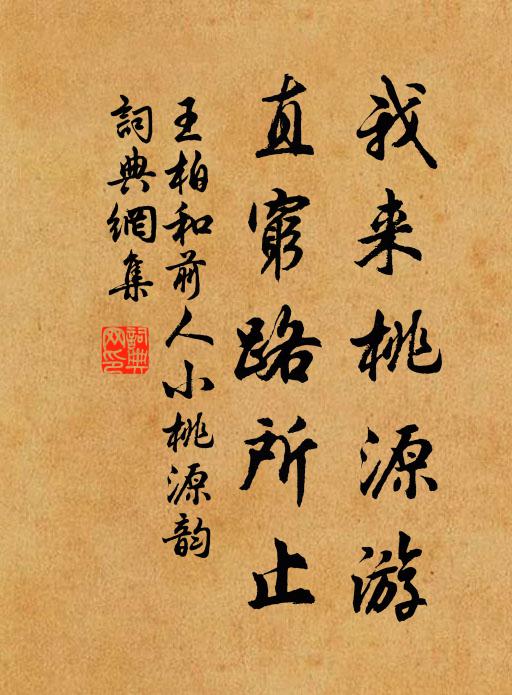 我来桃源游
直窮路所止
王柏和前人小桃源韵
詞典網集
詞典
网印